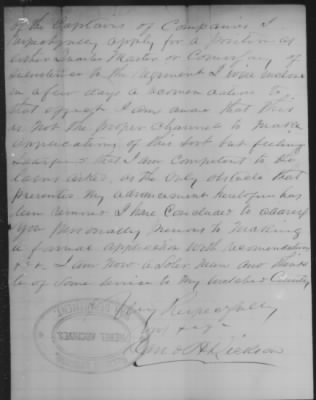 of the Captains of Companies I
respectfully apply for a position as
either Quarter Master or Commissary of
Subsistence to the regiment I will enclose
in a few days a recommendation to
that effect I am aware that this
is not the proper channel to make
applications of this sort but feeling
that I am Competent to
as the only obstacle that
prevented my advancement heretofore has
been removed I have Concluded to address
you personally previous to making
a formal application with recommendations
&c. I am now a sober man and think
be of some service to my Country
Very Respectfully
Yours &c
Dickson